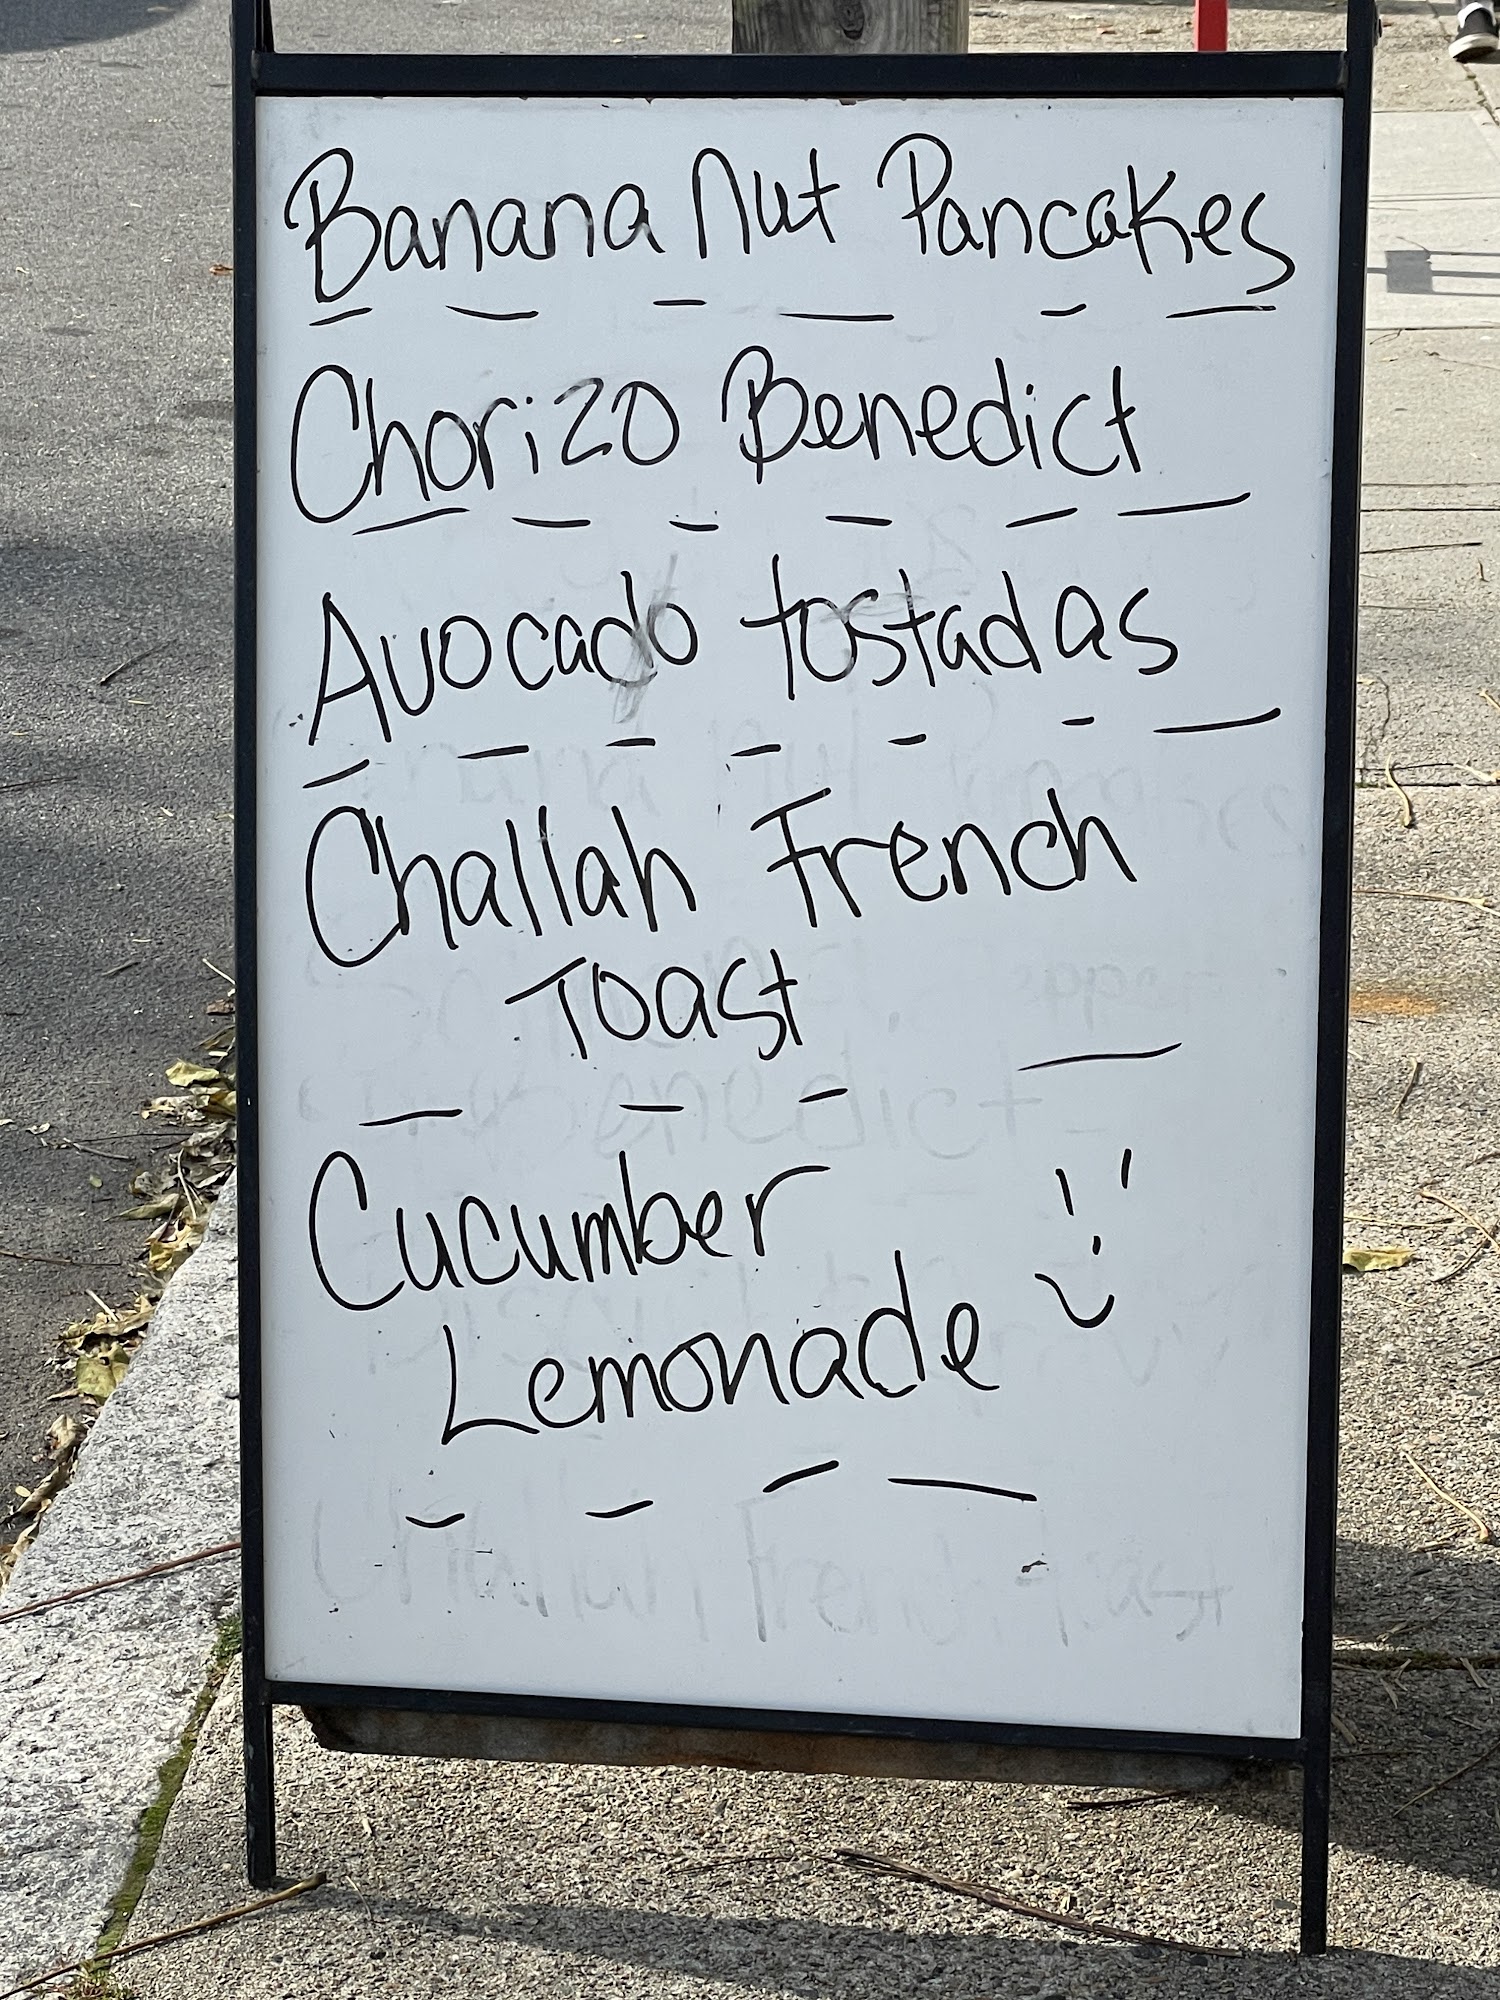 Banana Nut Pancakes
Chorizo Benedict
Avocado tostadas
Challah French
Toast
Cucumber
Lemonade
Challah French toast